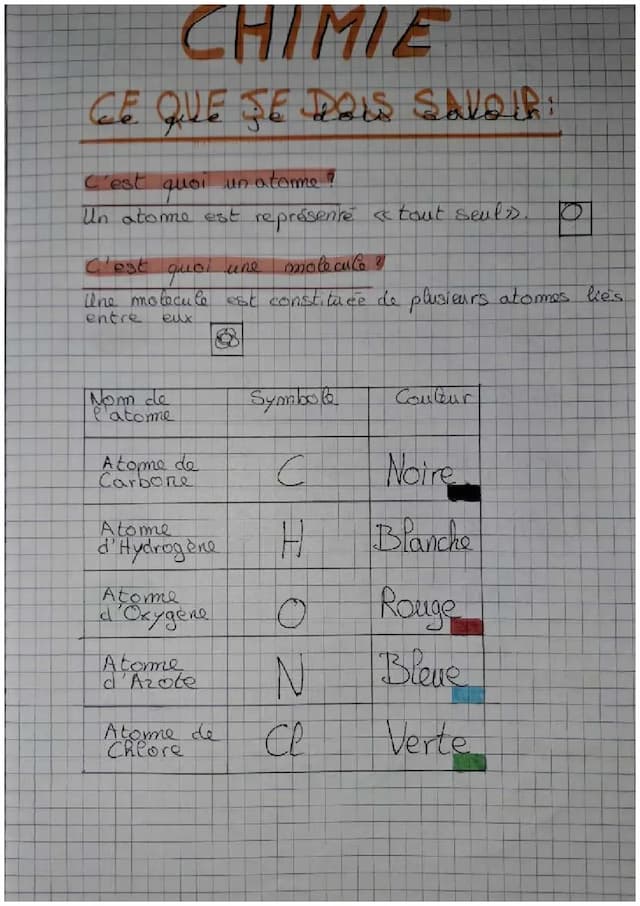 CHIMIE
CE QUE JE DOIS SAVOIR:
ce que je dois savoir
C'est quoi un atome ?
Un atome est représenté «tout seul».
C'est quoi une molécule ?
Une molécule est constituée de plusieurs atomes liés
entre eux
Nom de l'atome Symbole Couleur
Atome de Carbone C Noire
Atome d'Hydrogène H Blanche
Atome d'Oxygène O Rouge
Atome d'Azote N Bleue
Atome de Chlore Cl Verte